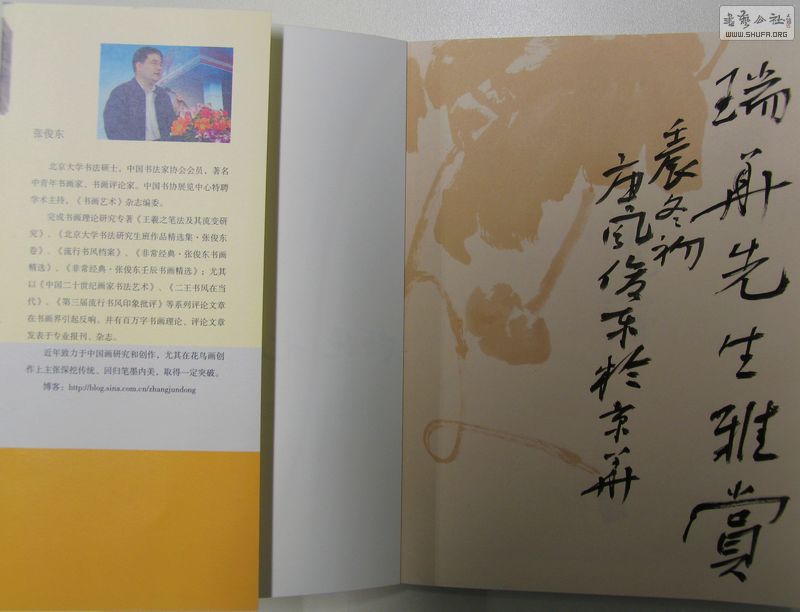 张俊东
北京大学书法硕士，中国书法家协会会员，著名
中青年书画家、书画评论家。中国书协展览中心特聘
学术主持，《书画艺术》杂志编委。
完成书画理论研究专著《王羲之笔法及其流变研
究》、《北京大学书法研究生班作品精选集·张俊东
卷》、《流行书风档案》、《非常经典·张俊东书画
精选》、《非常经典·张俊东壬辰书画精选》；尤其
以《中国二十世纪画家书法艺术》、《二王书风在当
代》、《第三届流行书风印象批评》等系列评论文章
在书画界引起反响。并有百万字书画理论、评论文章
发表于专业报刊、杂志。
近年致力于中国画研究和创作，尤其在花鸟画创
作上主张深挖传统、回归笔墨内美，取得一定突破。
博客：http://blog.sina.com.cn/zhangjundong
瑞华先生雅赏
壬辰冬初
唐风俊东于京华
书艺公社
WWW.SHUFA.ORG